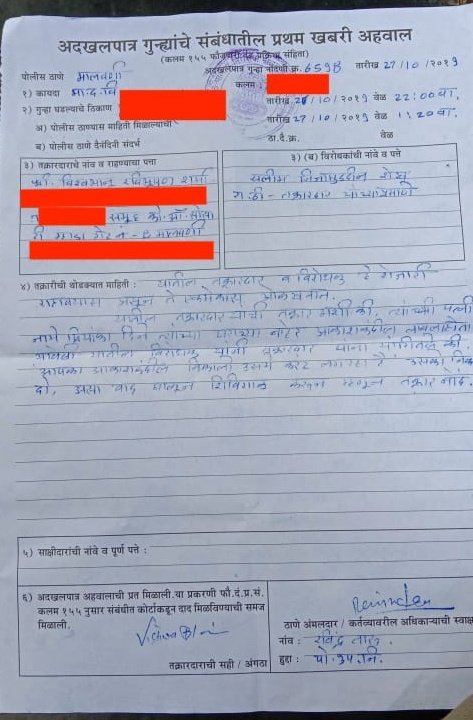 अदखलपात्र गुन्ह्यांचे संबंधातील प्रथम खबरी अहवाल
(कलम १५५ फौजदारी प्रक्रिया संहिता)
पोलीस ठाणे मालवणी अदखलपात्र गुन्हा नोंदणी क्र. 659B तारीख 27/10/2019
१) कायदा भादवि कलम :
२) गुन्हा घडल्याचे ठिकाण तारीख 27/10/2019 वेळ 22:00 वा.
अ) पोलीस ठाण्यास माहिती मिळाल्याची तारीख 27/10/2019 वेळ 1:20 वा.
ब) पोलीस ठाण्याचे दैनंदिनी संदर्भ ठा.दै.क्र. वेळ
३) तक्रारदाराचे नांव व राहण्याचा पत्ता
श्री. विश्वभान रविभूषण शर्मा
समूह को.ऑ. सोसा
गेट नं - 8 मालवणी
३) (ब) विरोधकांची नांवे व पत्ते
सलीम निजामुद्दीन शेख
रा.ठी - तक्रारदार यांच्याप्रमाणे
४) तक्रारीची थोडक्यात माहिती : यातील तक्रारदार व विरोधक हे शेजारी
राहावयास असून ते एकमेकांस ओळखतात.
यातील तक्रारदार यांची तक्रार अशी की, त्यांच्या पत्नी
नामे प्रियांका हिने त्यांच्या घराच्या बाहेर आकाशकंदील लावलेला होता
यातील विरोधक यांनी तक्रारदार यांना सांगितले की,
आपका आकाशकंदील निकालो उसमें करंट लग रहा है उसको निका
दो, असा वाद घालून शिविगाळ केली म्हणून तक्रार नोंद
५) साक्षीदारांची नांवे व पूर्ण पत्ते :
६) अदखलपात्र अहवालाची प्रत मिळाली. या प्रकरणी फौ.दं.प्र.सं.
कलम १५५ नुसार संबंधीत कोर्टाकडून दाद मिळविण्याची समज
मिळाली.
तक्रारदाराची सही / अंगठा
ठाणे अंमलदार / कर्तव्यावरील अधिकाऱ्याची स्वाक्ष
नांव :
हुद्दा : पो.उप.नि.